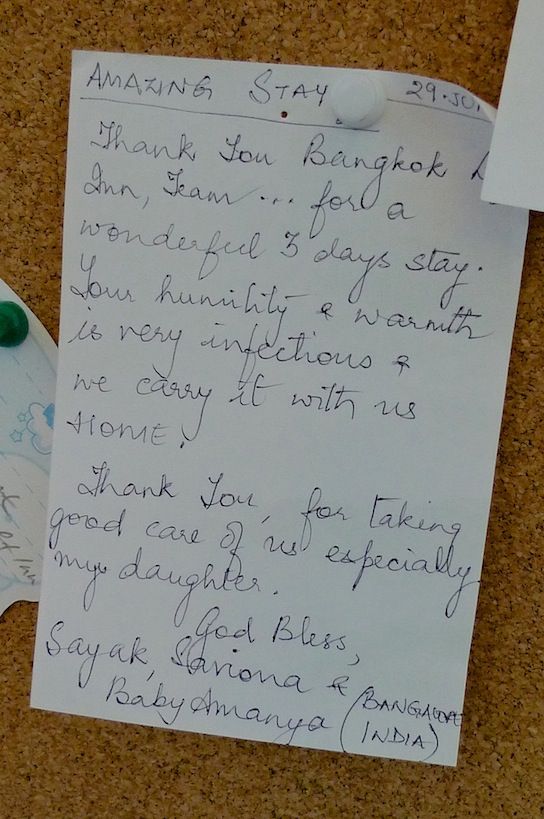 AMAZING STAY 29.JU
Thank You Bangkok
Inn, Team... for a
wonderful 3 days stay.
Your humility & warmth
is very infectious &
we carry it with us
HOME.
Thank You, for taking
good care of us especially
my daughter.
God Bless,
Sayak, Saviona &
Baby Amanya (BANGALORE
INDIA)